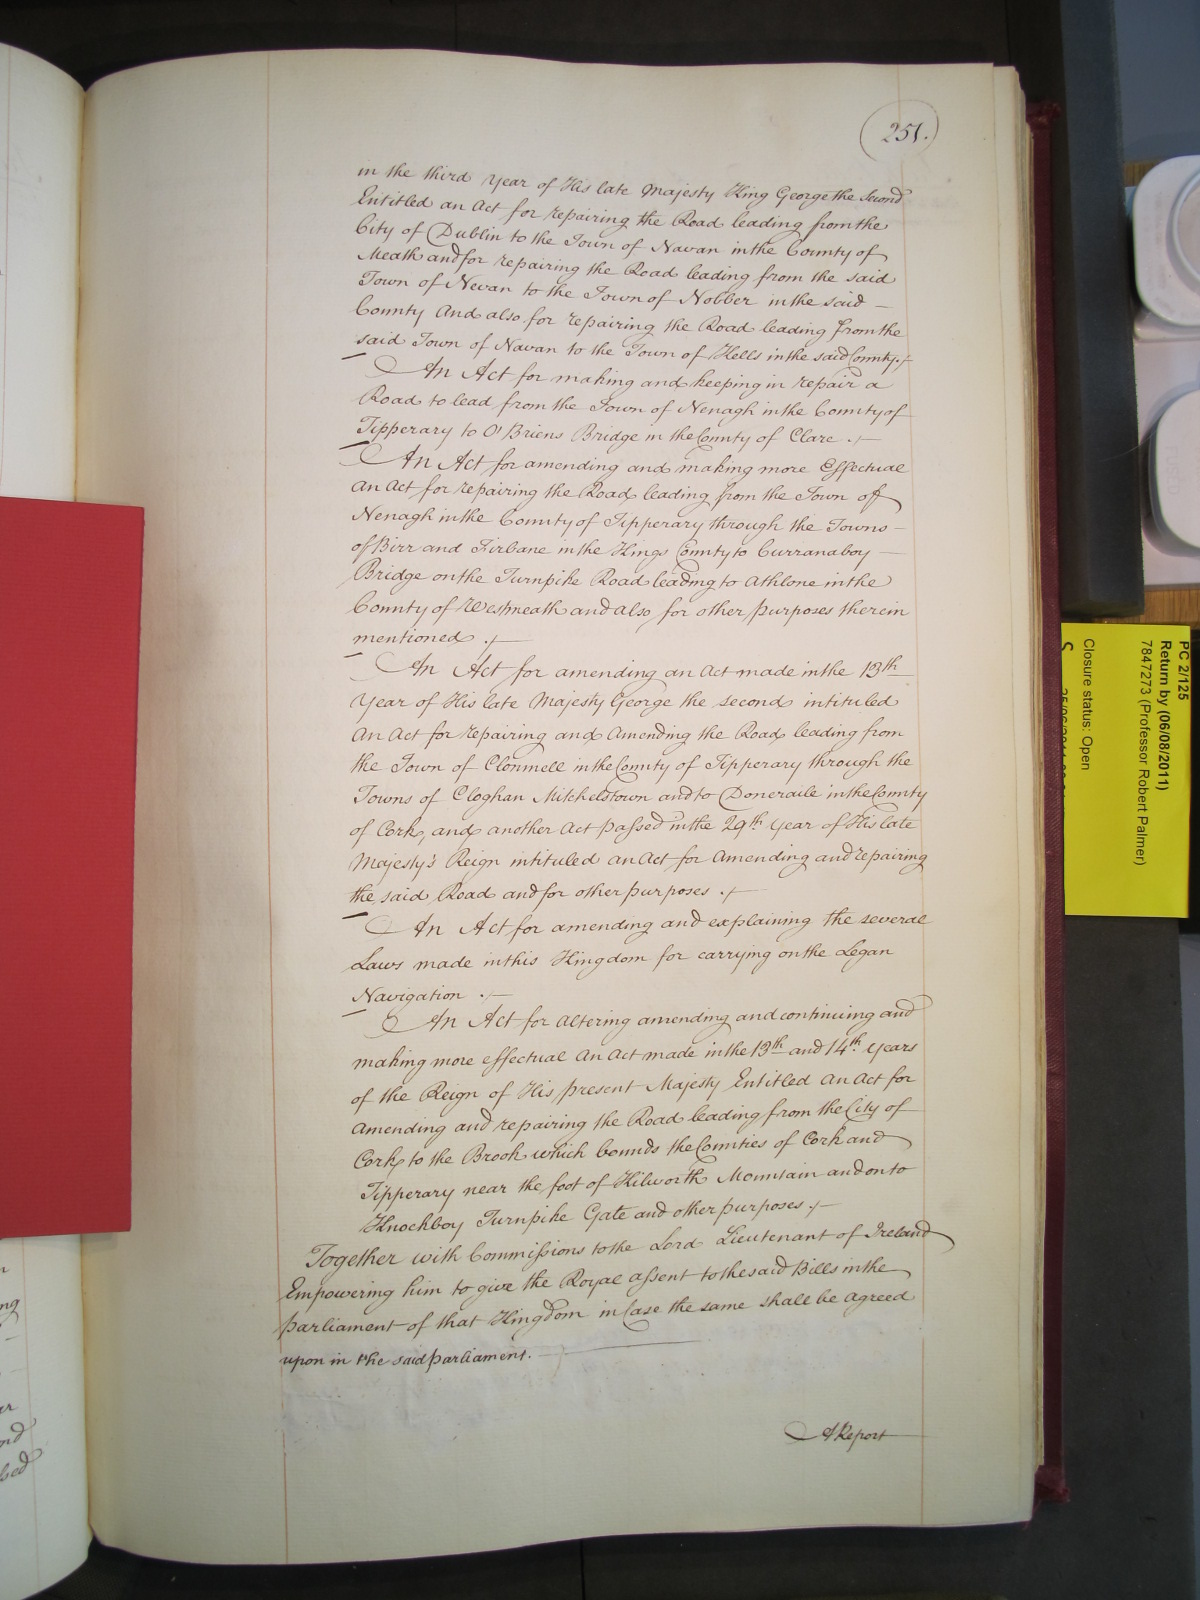 251.
in the third Year of His late Majesty King George the Second
Entitled an Act for repairing the Road leading from the
City of Dublin to the Town of Navan in the County of
Meath and for repairing the Road leading from the said
Town of Nevan to the Town of Nobber in the said —
County And also for repairing the Road leading from the
said Town of Navan to the Town of Kells in the said County.
An Act for making and keeping in repair a
Road to lead from the Town of Nenagh in the County of
Tipperary to O'Briens Bridge in the County of Clare .
An Act for amending and making more Effectual
an Act for repairing the Road leading from the Town of
Nenagh in the County of Tipperary through the Towns —
of Birr and Firbane in the Kings County to Curranaboy —
Bridge on the Turnpike Road leading to Athlone in the
County of Westmeath and also for other purposes therein
mentioned .
An Act for amending an Act made in the 13th
Year of His late Majesty George the second intituled
an Act for repairing and Amending the Road leading from
the Town of Clonmell in the County of Tipperary through the
Towns of Cloghan Mitchelstown and to Doneraile in the County
of Cork, and another Act passed in the 29th Year of His late
Majesty's Reign intituled an Act for Amending and repairing
the said Road and for other purposes .
An Act for amending and explaining the several
Laws made in this Kingdom for carrying on the Legan
Navigation .
An Act for altering amending and continuing and
making more effectual an Act made in the 13th and 14th Years
of the Reign of His present Majesty Entitled an Act for
amending and repairing the Road leading from the City of
Cork to the Brook which bounds the Counties of Cork and
Tipperary near the foot of Kilworth Mountain and on to
Knockboy Turnpike Gate and other purposes .
Together with Commissions to the Lord Lieutenant of Ireland
Empowering him to give the Royal assent to the said Bills in the
parliament of that Kingdom in Case the same shall be agreed
upon in the said parliament. —
A Report
PC 2/125
Return by (06/08/2011)
7847273 (Professor Robert Palmer)
Closure status: Open